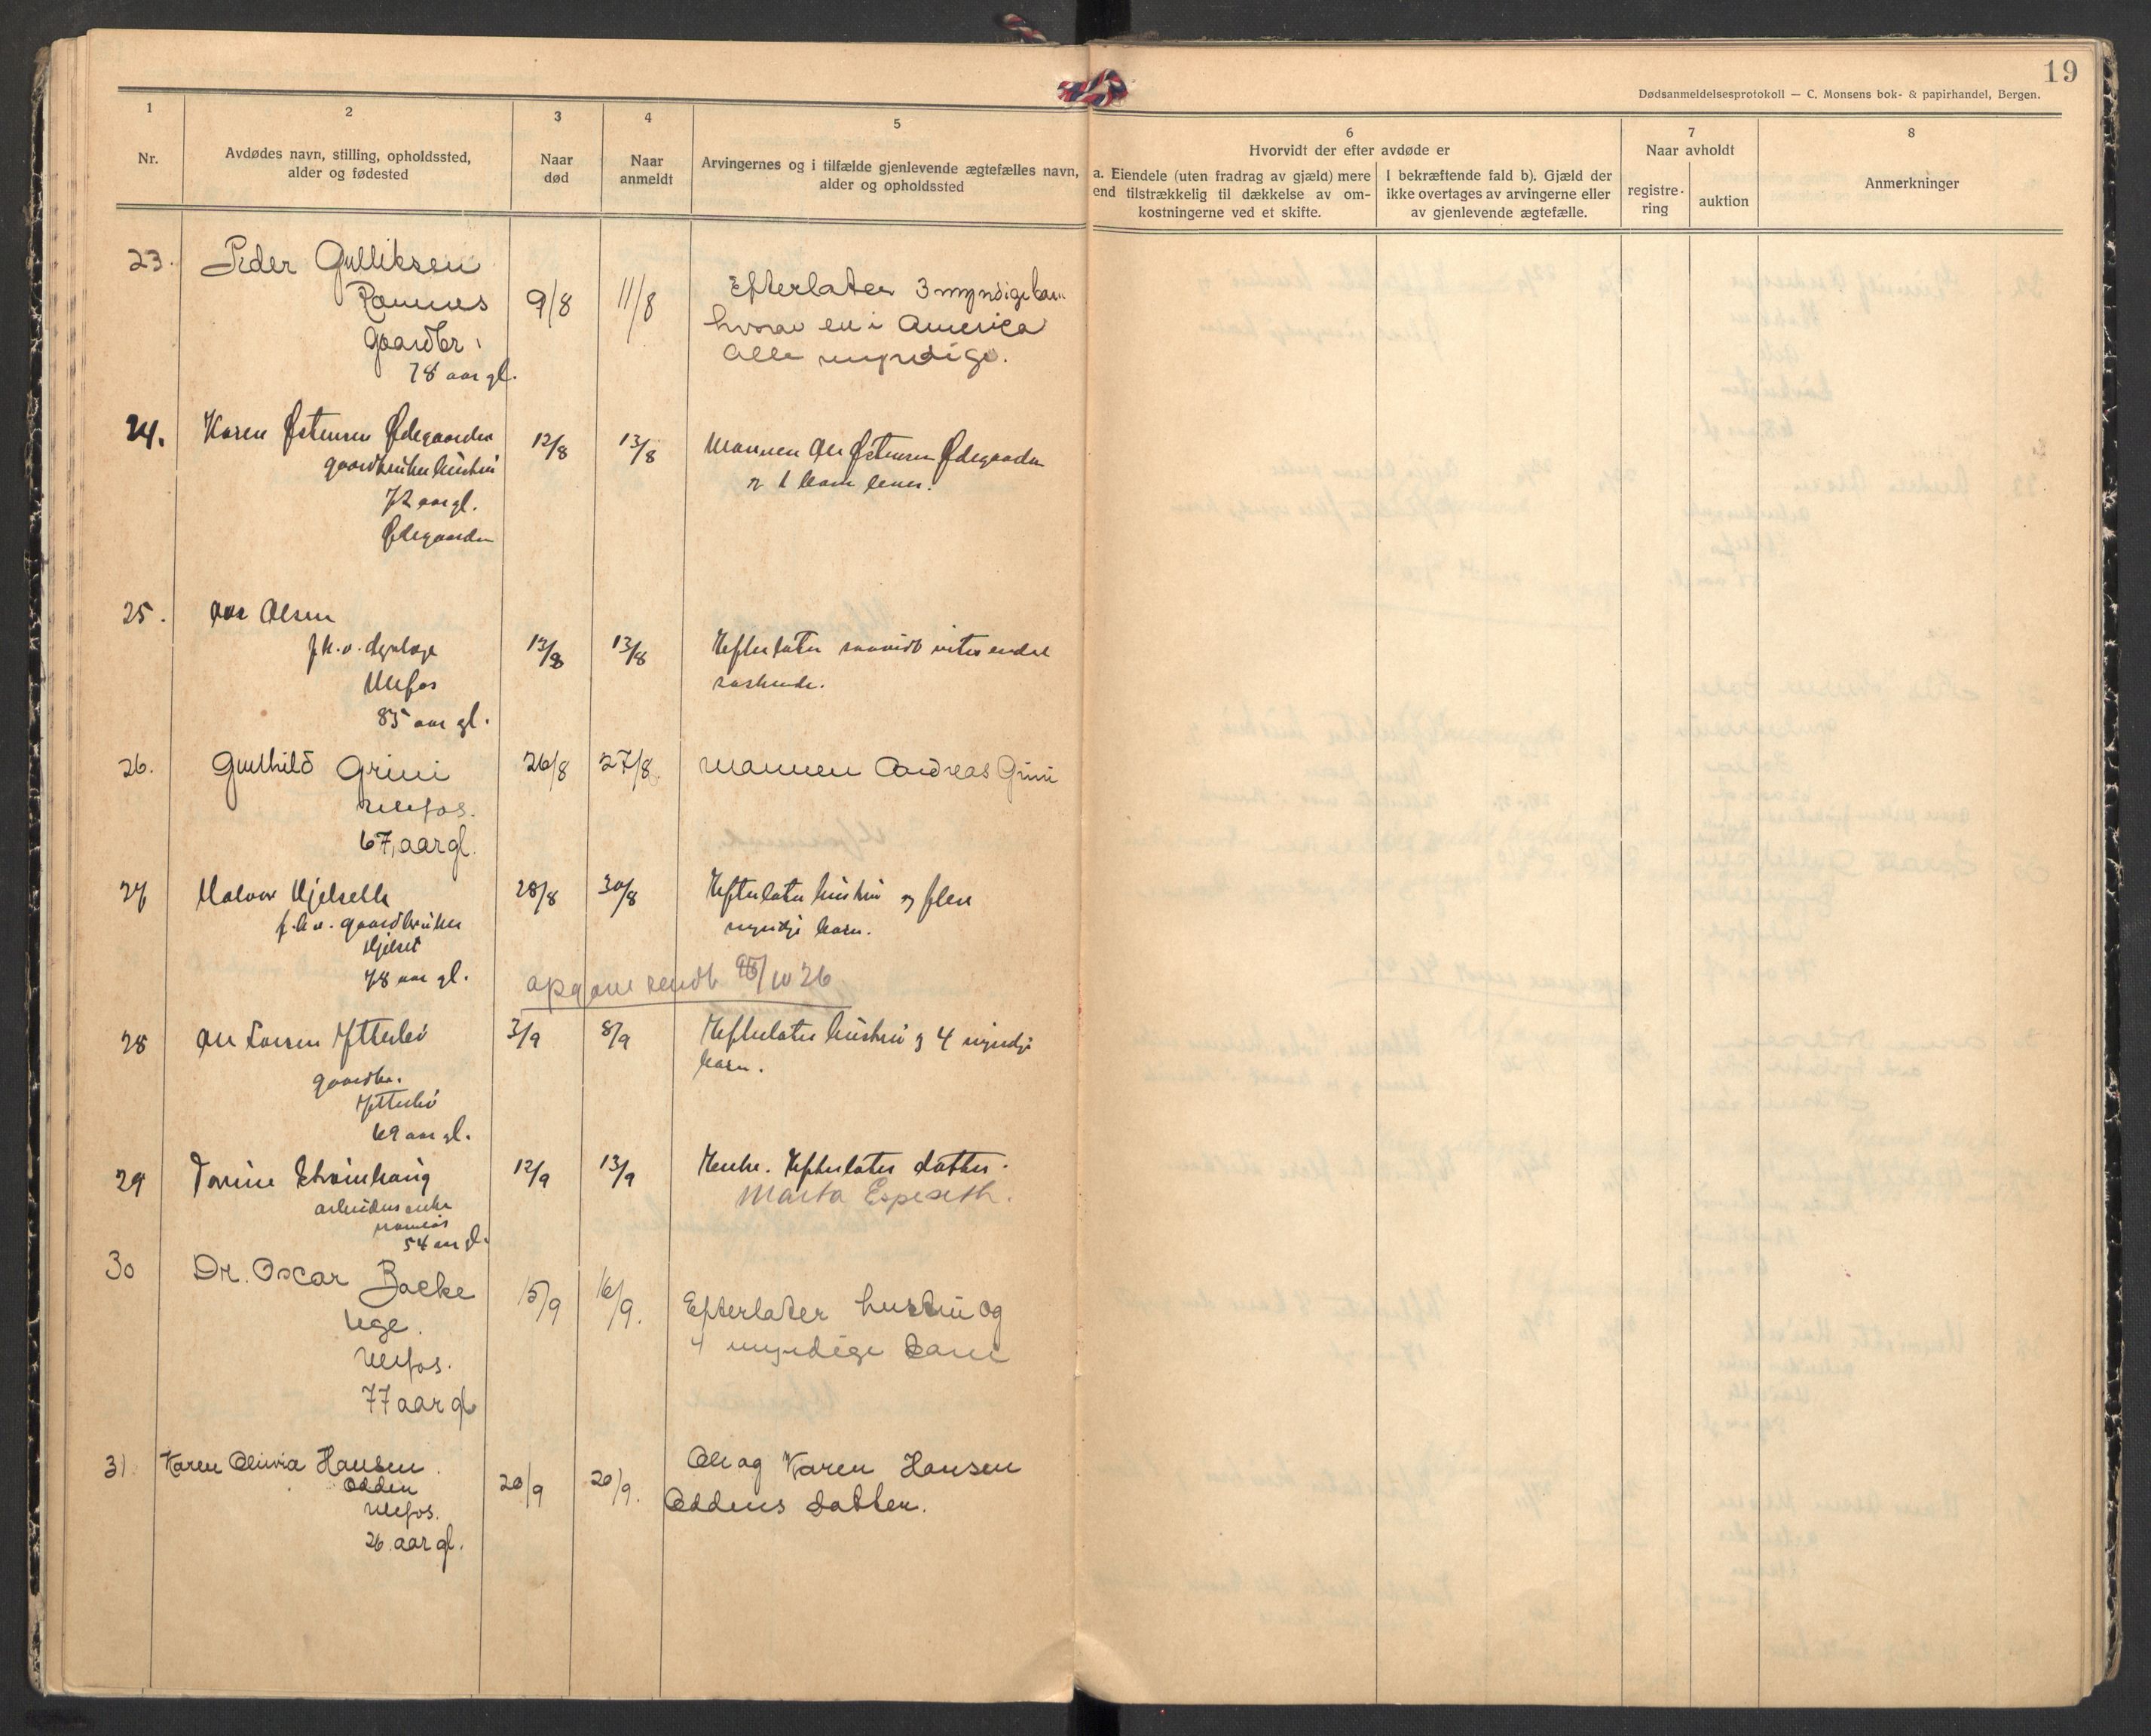 19
Dødsanmeldelsesprotokoll — C. Monsens bok- & papirhandel, Bergen.
1
2
3
4
5
6
7
8
Nr.
Avdødes navn, stilling, opholdssted,
alder og fødested
Naar
død
Naar
anmeldt
Arvingernes og i tilfælde gjenlevende ægtefælles navn,
alder og opholdssted
Hvorvidt der efter avdøde er
a. Eiendele (uten fradrag av gjæld) mere
end tilstrækkelig til dækkelse av om-
kostningerne ved et skifte.
I bekræftende fald b). Gjæld der
ikke overtages av arvingerne eller
av gjenlevende ægtefælle.
Naar avholdt
registre-
ring
auktion
Anmerkninger
23. Peder Gulliksen
Romnes
Gaardbr.
78 aar gl.
9/8 11/8
Efterlater 3 myndige barn
hvorav en i America
Alle myndige.
24. Karen Østensen Ødegaarden
gaardbrukerhustru
72 aar gl.
Ødegaarden
12/8 13/8
Mannen Ole Østensen Ødegaarden
og 1 barn lever.
25. Olsen
f.h.v.
Ulefos
85 aar gl.
13/8 13/8
Efterlater saavidt vites endel
søskende.
26. Gunhild Grini
Ulefos.
67, aar gl.
26/8 27/8
Mannen Andreas Grini
27 Halvor Hjelseth
f.h.v. gaardbruker
Hjelset
78 aar gl.
28/8 30/8
Efterlater hustru og flere
myndige barn.
opgave sendt /10 26
28 Ole Larsen Ytterbø
gaardbr.
Ytterbø
69 aar gl.
3/9 8/9
Efterlater hustru og 4 myndige
barn.
29 Strømhaug
arbeiderenke
54 aar gl.
12/9 13/9
Enke. Efterlater datter.
Marta Espeseth.
30 Dr. Oscar Backe
lege.
Ulefos.
77 aar gl
15/9 16/9.
Efterlater hustru og
4 myndige barn
31 Karen Olivia Hansen.
Odden
Ulefos.
26 aar gl.
20/9 20/9.
Ole og Karen Hansen
Oddens datter.